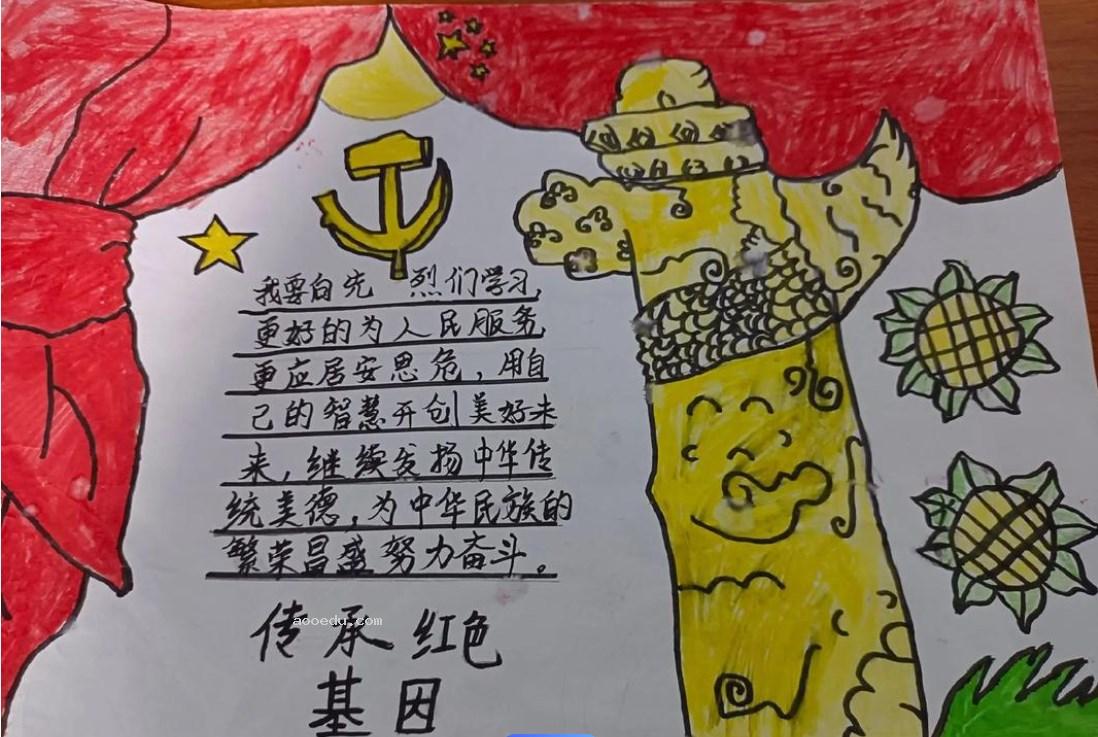 我要向先 烈们学习,
更好的为人民服务
更应居安思危，用自
己的智慧开创美好未
来，继续发扬中华传
统美德，为中华民族的
繁荣昌盛努力奋斗。
aooedu.com
传承红色
基因